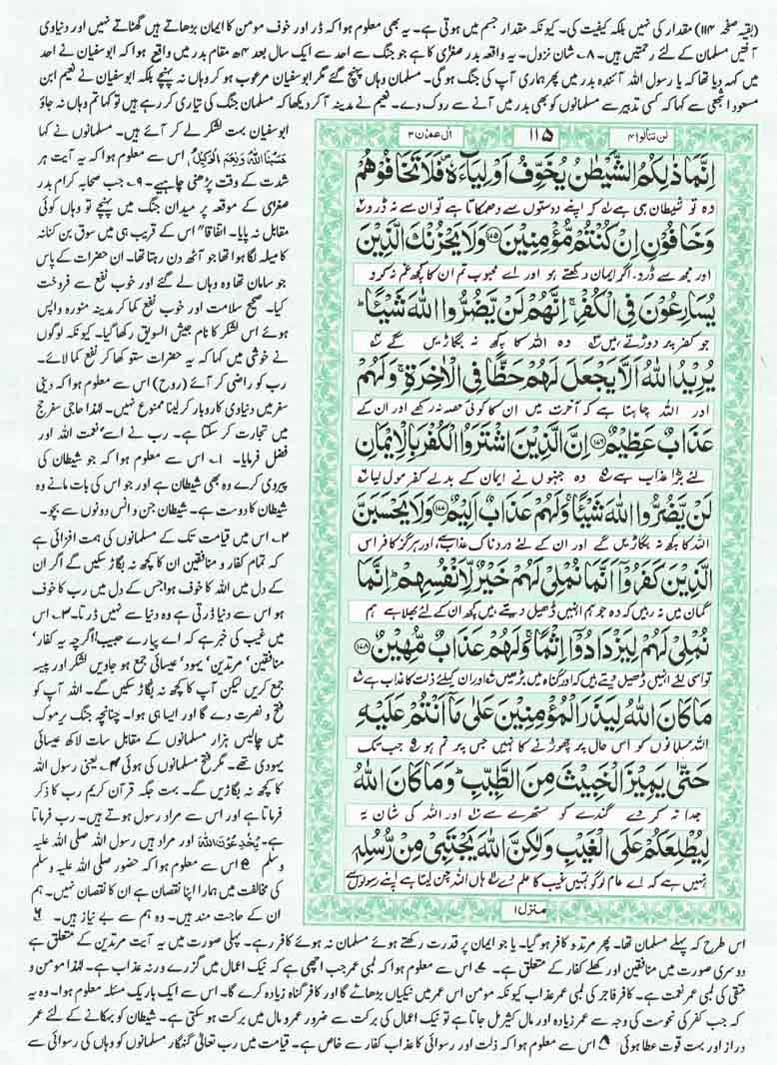 (بقیہ صفحہ ۱۱۴) مقدار کی نہیں بلکہ کیفیت کی۔ کیونکہ مقدار جسم میں ہوتی ہے۔ یہ بھی معلوم ہوا کہ ڈر اور خوف مومن کا ایمان بڑھاتے ہیں گھٹاتے نہیں اور دنیاوی
آفتیں مسلمان کے لئے رحمتیں ہیں۔ ۸۔ شان نزول۔ یہ واقعہ بدر صغرٰی کا ہے جو جنگ سے احد سے ایک سال بعد ۴ھ مقام بدر میں واقع ہوا کہ ابوسفیان نے احد
میں کہہ دیا تھا کہ یا رسول اللہ آئندہ بدر میں پھر ہماری آپ کی جنگ ہوگی۔ مسلمان وہاں پہنچ گئے مگر ابوسفیان مرعوب ہو کر وہاں نہ پہنچے بلکہ ابوسفیان نے نعیم ابن
مسعود اشجعی سے کہا کہ کسی تدبیر سے مسلمانوں کو بھی بدر میں آنے سے روک دے۔ نعیم نے مدینہ آ کر دیکھا کہ مسلمان جنگ کی تیاری کر رہے ہیں تو کہا تم وہاں نہ جاؤ
لن تنالوا ۴ ۱۱۵ اٰل عمرٰن ۳
اِنَّمَا ذٰلِكُمُ الشَّيْطٰنُ يُخَوِّفُ اَوْلِيَآءَهٗ فَلَا تَخَافُوْهُمْ
وہ تو شیطان ہی ہے کہ اپنے دوستوں سے دھمکاتا ہے تو ان سے نہ ڈرو
وَخَافُوْنِ اِنْ كُنْتُمْ مُّؤْمِنِيْنَ ﴿۱۷۵﴾ وَلَا يَحْزُنْكَ الَّذِيْنَ
اور مجھ سے ڈرو۔ اگر ایمان رکھتے ہو اور اے محبوب تم ان کا کچھ غم نہ کرو
يُسَارِعُوْنَ فِي الْكُفْرِ ۚ اِنَّهُمْ لَنْ يَّضُرُّوا اللّٰهَ شَيْـًٔا ۗ
جو کفر پر دوڑتے ہیں وہ اللہ کا کچھ نہ بگاڑیں گے
يُرِيْدُ اللّٰهُ اَلَّا يَجْعَلَ لَهُمْ حَظًّا فِي الْاٰخِرَةِ ۚ وَلَهُمْ
اور اللہ چاہتا ہے کہ آخرت میں ان کا کوئی حصہ نہ رکھے اور ان کے
عَذَابٌ عَظِيْمٌ ﴿۱۷۶﴾ اِنَّ الَّذِيْنَ اشْتَرَوُا الْكُفْرَ بِالْاِيْمَانِ
لئے بڑا عذاب ہے وہ جنہوں نے ایمان کے بدلے کفر مول لیا
لَنْ يَّضُرُّوا اللّٰهَ شَيْـًٔا ۚ وَلَهُمْ عَذَابٌ اَلِيْمٌ ﴿۱۷۷﴾ وَلَا يَحْسَبَنَّ
اللہ کا کچھ نہ بگاڑیں گے اور ان کے لئے درد ناک عذاب ہے اور ہرگز کافر اس
الَّذِيْنَ كَفَرُوْٓا اَنَّمَا نُمْلِيْ لَهُمْ خَيْرٌ لِّاَنْفُسِهِمْ ۗ اِنَّمَا
گمان میں نہ رہیں کہ وہ جو ہم انہیں ڈھیل دیتے ہیں کچھ ان کے لئے بھلا ہے ہم
نُمْلِيْ لَهُمْ لِيَزْدَادُوْٓا اِثْمًا ۚ وَلَهُمْ عَذَابٌ مُّهِيْنٌ ﴿۱۷۸﴾
تو اسی لئے انہیں ڈھیل دیتے ہیں کہ اور گناہ میں بڑھیں اور ان کیلئے ذلت کا عذاب ہے
مَا كَانَ اللّٰهُ لِيَذَرَ الْمُؤْمِنِيْنَ عَلٰى مَآ اَنْتُمْ عَلَيْهِ
اللہ مسلمانوں کو اس حال پر چھوڑنے کا نہیں جس پر تم ہو جب تک
حَتّٰى يَمِيْزَ الْخَبِيْثَ مِنَ الطَّيِّبِ ۗ وَمَا كَانَ اللّٰهُ
جدا نہ کر دے گندے کو ستھرے سے اور اللہ کی شان یہ
لِيُطْلِعَكُمْ عَلَى الْغَيْبِ وَلٰكِنَّ اللّٰهَ يَجْتَبِيْ مِنْ رُّسُلِهٖ
نہیں ہے کہ اے عام لوگو تمہیں غیب کا علم دے ہاں اللہ چن لیتا ہے اپنے رسولوں سے
منزل ۱
ابوسفیان بہت لشکر لے کر آئے ہیں۔ مسلمانوں نے کہا
حَسْبُنَا اللّٰهُ وَنِعْمَ الْوَكِيْلُ۔ اس سے معلوم ہوا کہ یہ آیت ہر
شدت کے وقت پڑھنی چاہیے۔ ۹۔ جب صحابہ کرام بدر
صغرٰی کے موقعہ پر میدان جنگ میں پہنچے تو وہاں کوئی
مقابل نہ پایا۔ اتفاقاً اس کے قریب ہی میں سوق بن کنانہ
کا میلہ لگا ہوا تھا جو آٹھ دن رہتا تھا۔ ان حضرات کے پاس
جو سامان تھا وہ وہاں لے گئے اور خوب نفع سے فروخت
کیا۔ صحیح سلامت اور خوب نفع کما کر مدینہ منورہ واپس
ہوئے اس لشکر کا نام جیش السویق رکھا گیا۔ کیونکہ لوگوں
نے خوشی میں کہا کہ یہ حضرات ستو کھا کر نفع کما لائے۔
رب کو راضی کر آئے (روح) اس سے معلوم ہوا کہ دینی
سفر میں دنیاوی کاروبار کر لینا ممنوع نہیں۔ لہٰذا حاجی سفر حج
میں تجارت کر سکتا ہے۔ رب نے اسے نعمت اللہ اور
فضل فرمایا۔ ۱۔ اس سے معلوم ہوا کہ جو شیطان کی
پیروی کرے وہ بھی شیطان ہے اور جو اس کی بات مانے وہ
شیطان کا دوست ہے۔ شیطان جن و انس دونوں سے بچو۔
۲۔ اس میں قیامت تک کے مسلمانوں کی ہمت افزائی ہے
کہ تمام کفار و منافقین ان کا کچھ نہ بگاڑ سکیں گے اگر ان
کے دل میں اللہ کا خوف ہوا جس کے دل میں رب کا خوف
ہو اس سے دنیا ڈرتی ہے وہ دنیا سے نہیں ڈرتا۔ ۳۔ اس
میں غیب کی خبر ہے کہ اے پیارے حبیب! اگرچہ یہ کفار،
منافقین، مرتدین، یہود، عیسائی جمع ہو جاویں لشکر اور پیسہ
جمع کریں لیکن آپ کا کچھ نہ بگاڑ سکیں گے۔ اللہ آپ کو
فتح و نصرت دے گا اور ایسا ہی ہوا۔ چنانچہ جنگ یرموک
میں چالیس ہزار مسلمانوں کے مقابل سات لاکھ عیسائی
یہودی تھے۔ مگر فتح مسلمانوں کی ہوئی ۴۔ یعنی رسول اللہ
کا کچھ نہ بگاڑیں گے۔ بہت جگہ قرآن کریم رب کا ذکر
فرماتا ہے اور اس سے مراد رسول ہوتے ہیں۔ رب فرماتا
ہے۔ يُخٰدِعُوْنَ اللّٰهَ اور مراد ہیں رسول اللہ صلی اللہ علیہ
وسلم ۵ اس سے معلوم ہوا کہ حضور صلی اللہ علیہ وسلم
کی مخالفت میں ہمارا اپنا نقصان ہے ان کا نقصان نہیں۔ ہم
ان کے حاجت مند ہیں۔ وہ ہم سے بے نیاز ہیں۔ ۶
اس طرح کہ پہلے مسلمان تھا۔ پھر مرتد و کافر ہو گیا۔ یا جو ایمان پر قدرت رکھتے ہوئے مسلمان نہ ہوئے کافر رہے۔ پہلی صورت میں یہ آیت مرتدین کے متعلق ہے
دوسری صورت میں منافقین اور کھلے کفار کے متعلق ہے۔ ۷ اس سے معلوم ہوا کہ لمبی عمر جب اچھی ہے کہ نیک اعمال میں گزرے ورنہ عذاب ہے۔ لہٰذا مومن و
متقی کی لمبی عمر نعمت ہے۔ کافر فاجر کی لمبی عمر عذاب کیونکہ مومن اس عمر میں نیکیاں بڑھائے گا اور کافر گناہ زیادہ کرے گا۔ اس سے ایک باریک مسئلہ معلوم ہوا۔ وہ یہ
کہ جب کفر کی نحوست کی وجہ سے عمر زیادہ اور مال کثیر مل جاتا ہے تو نیک اعمال کی برکت سے ضرور عمر و مال میں برکت ہو سکتی ہے۔ شیطان کو بہکانے کے لئے عمر
دراز اور بہت قوت عطا ہوئی ۸ اس سے معلوم ہوا کہ ذلت اور رسوائی کا عذاب کفار سے خاص ہے۔ قیامت میں رب تعالیٰ گنہگار مسلمانوں کو وہاں کی رسوائی سے